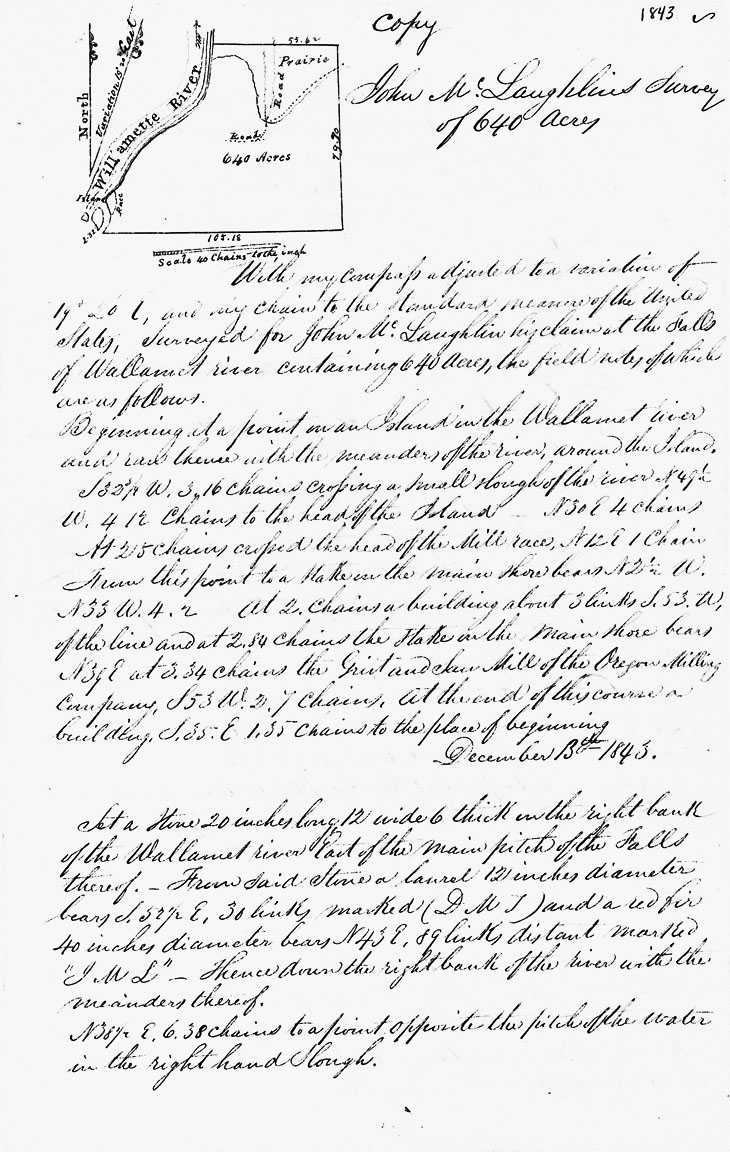 Copy
1843
John Mc. Laughlins Survey
of 640 Acres
North
Variation 19° 20 East
Willamette River
53.62
Prairie
Road
Road
640 Acres
79.20
Island
Race
1.35
108.18
Scale 40 Chains to the inch
With my compass adjusted to a variation of
19° 20 E, and my chain to the standard measure of the United
States, Surveyed for John Mc. Laughlin his claim at the Falls
of Wallamet river containing 640 Acres, the field notes of which
are as follows.
Beginning at a point on an Island in the Wallamet river
and ran thence with the meanders of the river, around the Island.
S32½ W. 3,16 chains crossing a small slough of the river N49½
W. 4 12 Chains to the head of the Island — N30E 4 chains
At 25 chains crossed the head of the Mill race, N12E 1 Chain
From this point to a stake on the main shore bears N21½ W.
N33 W. 4. 2 At 2. Chains a building about 3 links S.53. W,
of the line and at 2,84 chains the stake on the main shore bears
N39E at 3.34 chains the Grist and Saw Mill of the Oregon Milling
Company, S53 W. 2. 7 chains. At the end of this course a
building. S.35. E 1.35 chains to the place of beginning
December 13th 1843.
Set a stone 20 inches long, 12 wide 6 thick on the right bank
of the Wallamet river East of the main pitch of the Falls
thereof. — From said Stone a laurel 12 inches diameter
bears S. 52½ E, 30 links marked (D M J) and a red fir
40 inches diameter bears N43E, 89 links distant marked
"J M L" — thence down the right bank of the river with the
meanders thereof.
N38½ E, 6.38 chains to a point opposite the pitch of the water
in the right hand Slough.